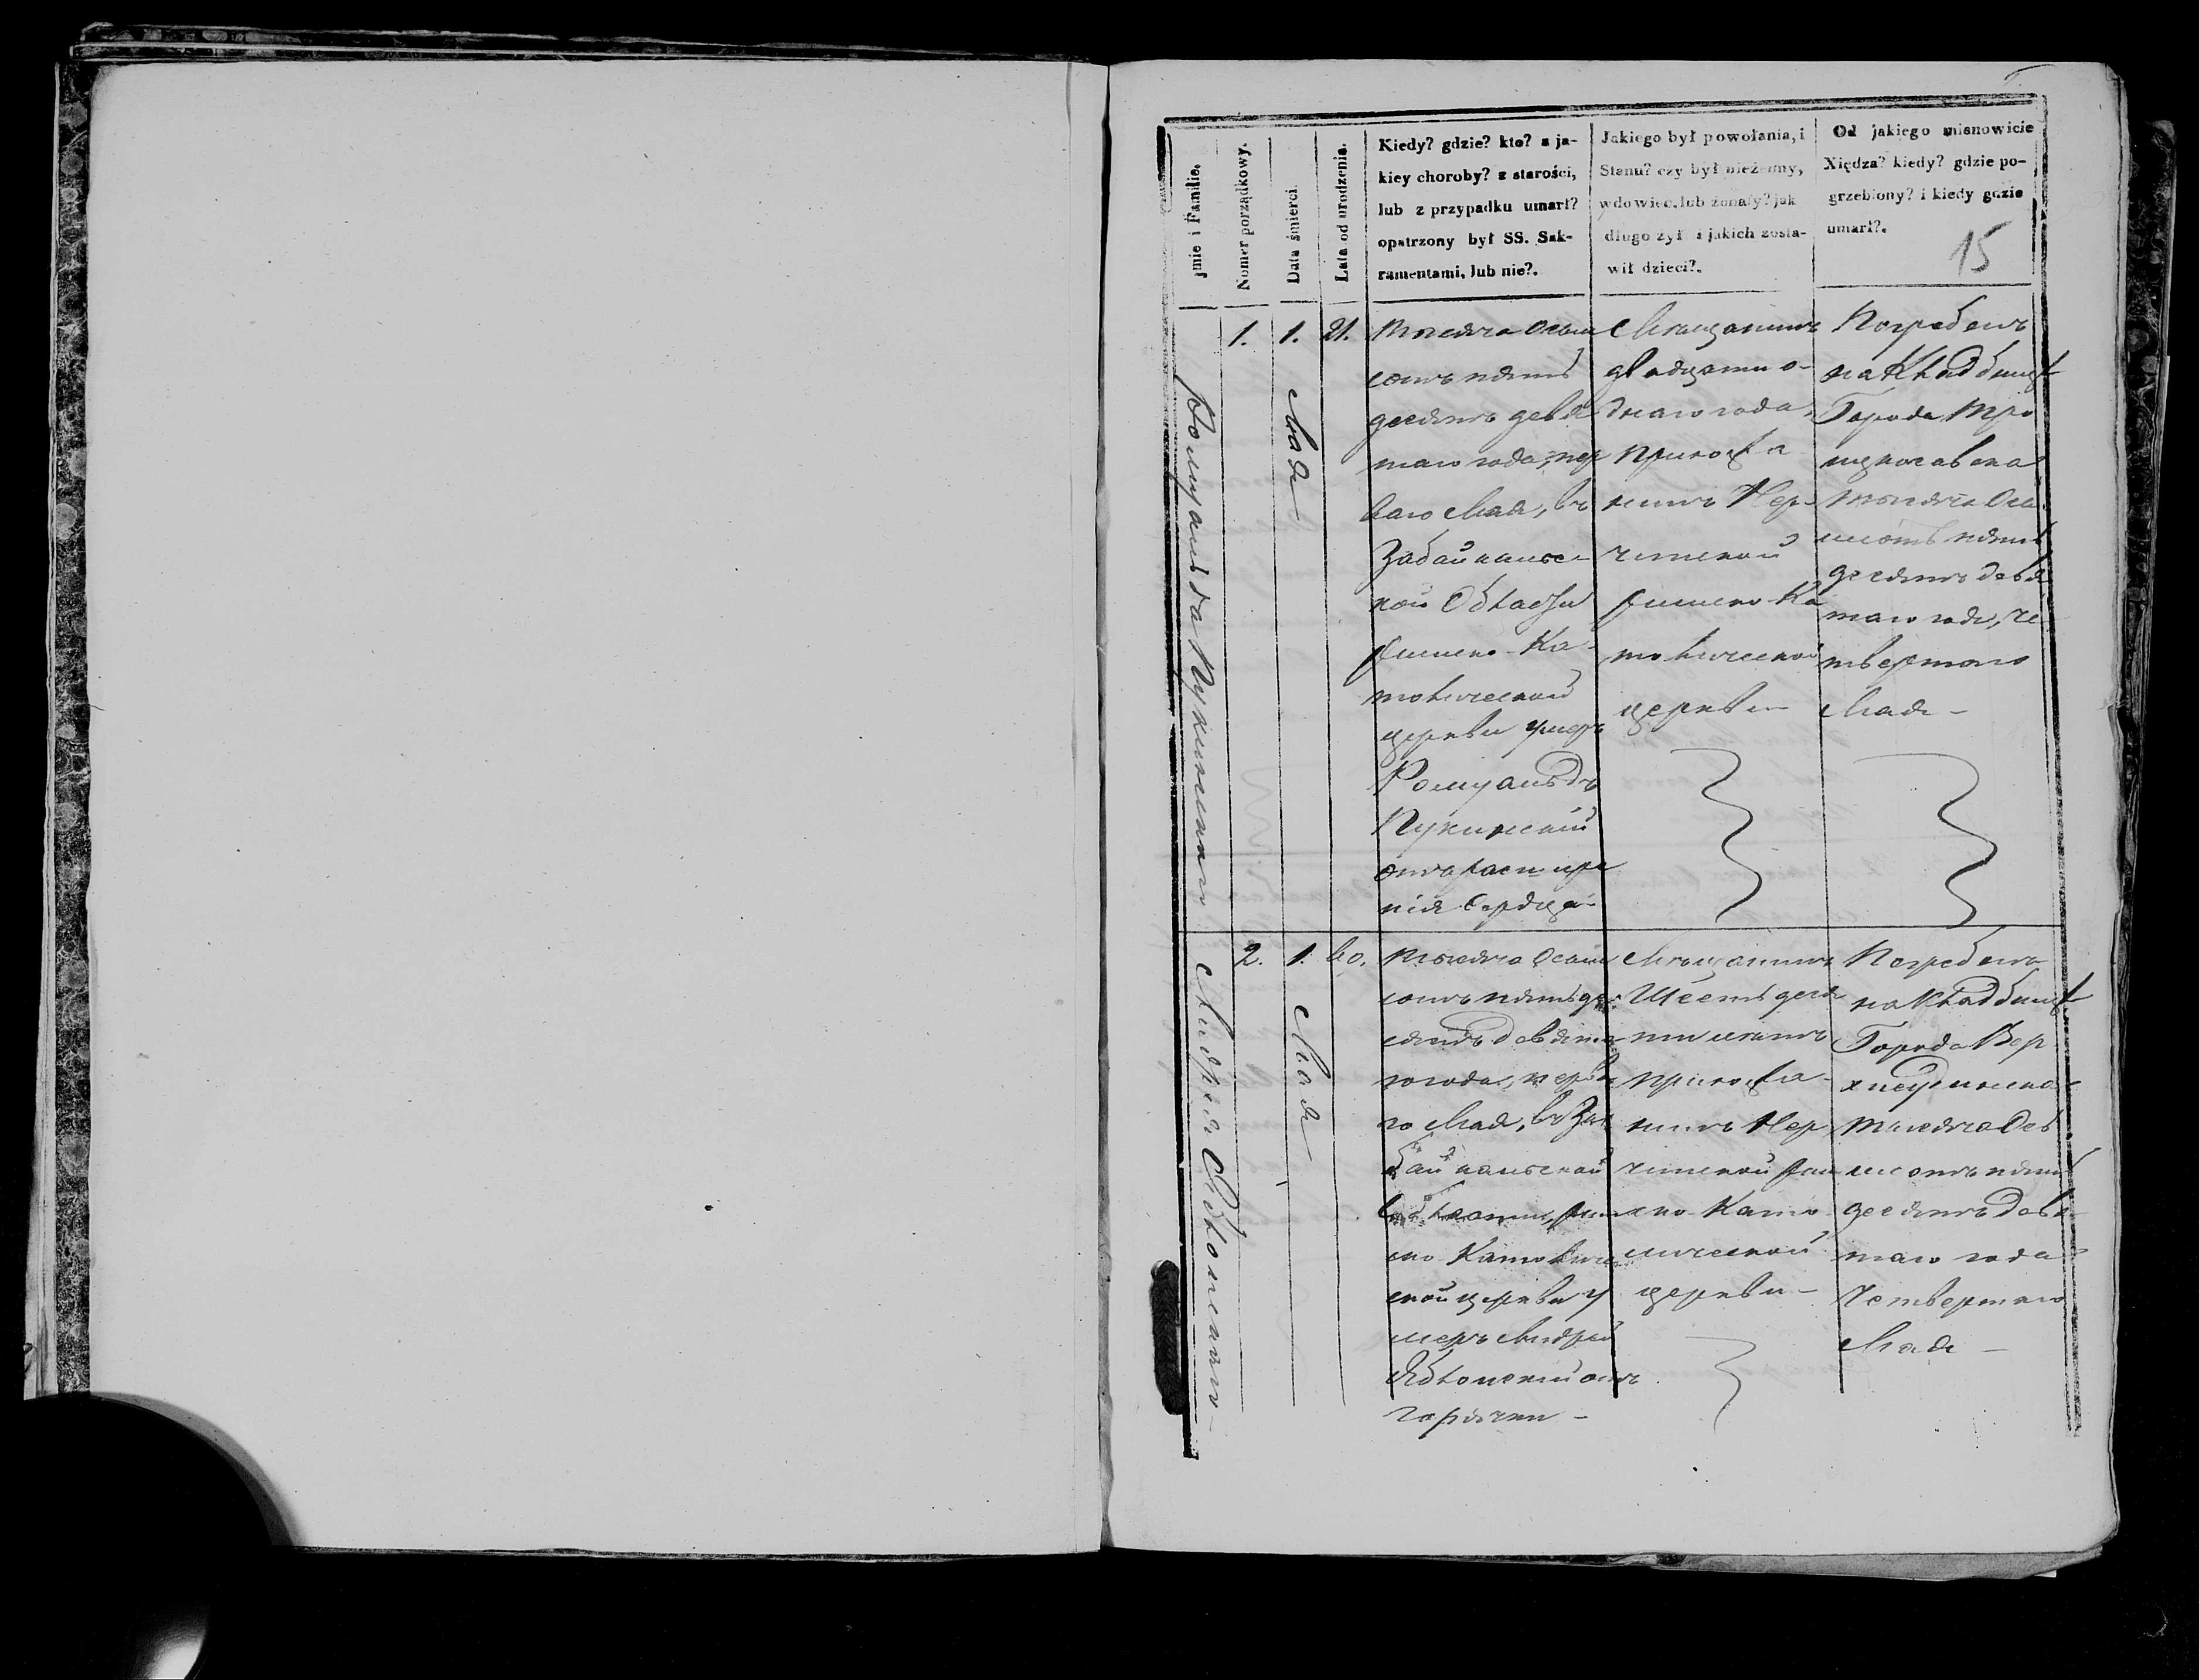 15
Jmie i Familie.
Nomer porządkowy.
Data śmierci.
Lata od urodzenia.
Kiedy? gdzie? kto? z ja-
kiey choroby? z starości,
lub z przypadku umarł?
opatrzony był SS. Sak-
ramentami, lub nie?.
Jakiego był powołania, i
Stanu? czy był nieżenny,
wdowiec, lub żonaty? jak
długo żył i jakich zosta-
wił dzieci?.
Od jakiego mianowicie
Xiędza? kiedy? gdzie po-
grzebiony? i kiedy gdzie
umarł?.
Ромуальда Пукинскаго
1.
1.
Мая
21.
Тысяча осьм
сотъ пять
десятъ девя
таго года, пер
ваго Мая, въ
Забайкальс-
кой Области
римско-Ка-
толической
церкви умеръ
Ромуальдъ
Пукинскій
отъ расшире
нія сердца
Мѣщанинъ
двадцати о-
днаго года,
прихожа
нинъ Нер-
чинской
римско-Ка
толической
церкви
Погребенъ
на Кладбищѣ
Города Тро
ицкосавска
тысяча ось
мсотъ пять
десятъ девя
таго года, че
твертаго
Мая
Андрея Яблонскаго
2.
1.
Мая
60.
Тысяча осьм
сотъ пятьде
сятъ девята
го года, перва
го Мая, въ За
байкальской
Области, рим
ско Католиче
ской церкви у
меръ Андрей
Яблонскій отъ
горячки
Мѣщанинъ
Шестьдеся
ти лѣтъ
прихожа-
нинъ Нер
чинской рим
ско-Като
лической
церкви
Погребенъ
на Кладбищѣ
Города Вер
хнеудинска
тысяча ось
мсотъ пять
десятъ девя
таго года
Четвертаго
Мая